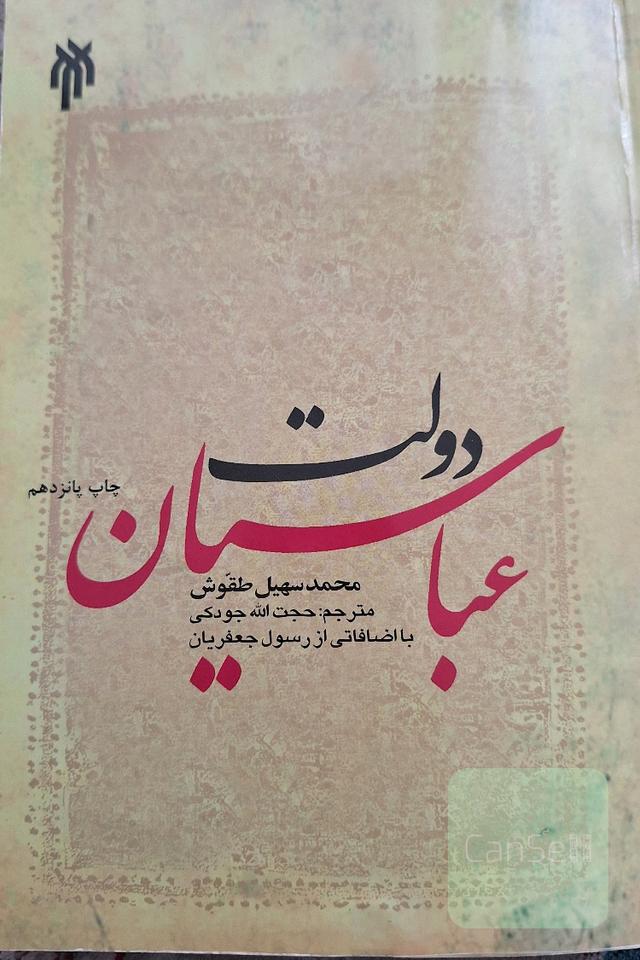 دولت
عباسیان
چاپ پانزدهم
محمد سهیل طقّوش
مترجم: حجت الله جودکی
با اضافاتی از رسول جعفریان
CanSell